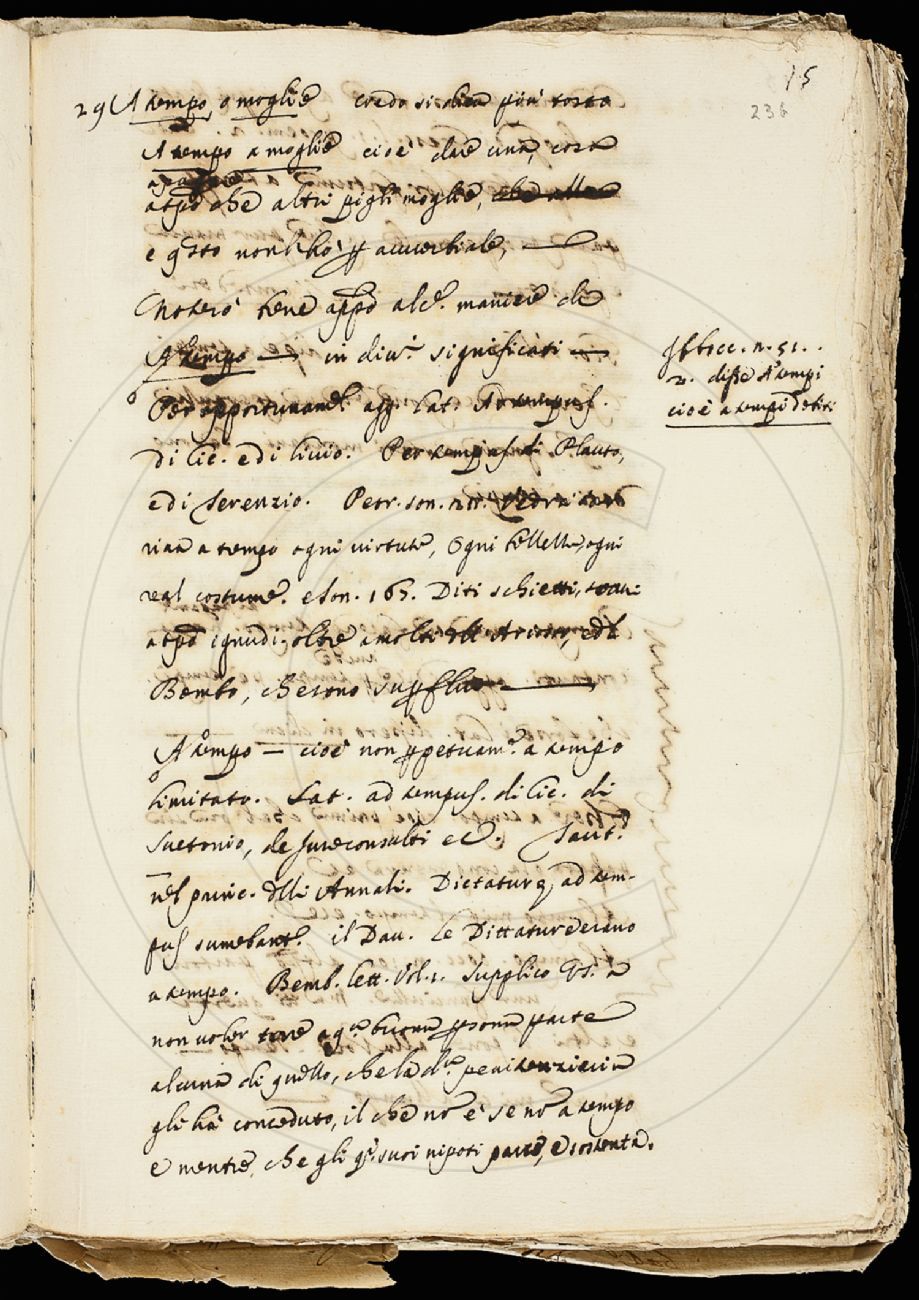 15
236
29 A tempo, o moglie credo si dica piu tosto
A tempo a moglie cioè dare una, cosa
a tpo che altri pigli moglie,
e qsto non l'ho p avverbiale,
Noterò bene appo alc. maniere di
A tempo — in div.i significati —
Per opportunam.te agg. Lat. Ad tempus.
di Cic. e di Livio. Per tempus di Plauto,
e di Terenzio. Petr. son.
a tempo ogni virtute, Ogni bellezza, ogni
real costume. e son. 165. Diti schietti, soavi
a tpo ignudi; oltre a molti dell'Ariosto, e del
Bembo, che sono supflui —
A tempo — cioè non ppetuam.te a tempo
limitato. Lat. ad tempus. di Cic. di
Suetonio, de Jureconsulti ec. Tacit.
nel princ. dlli Annali. Dictaturę ad tem-
pus sumebant.r il Dav. Le Dittature erano
a tempo. Bemb. lett. Vol. 1. Supplico V.S. a
non voler torre a q.ta buona psona parte
alcuna di quello, che la d.ta penitenzieria
gli ha conceduto, il che nō è se nō a tempo
e mentre, che gli q.i suoi nipoti
Il bocc. n. 51.
2. disse A tempi
cioè a tempi debiti